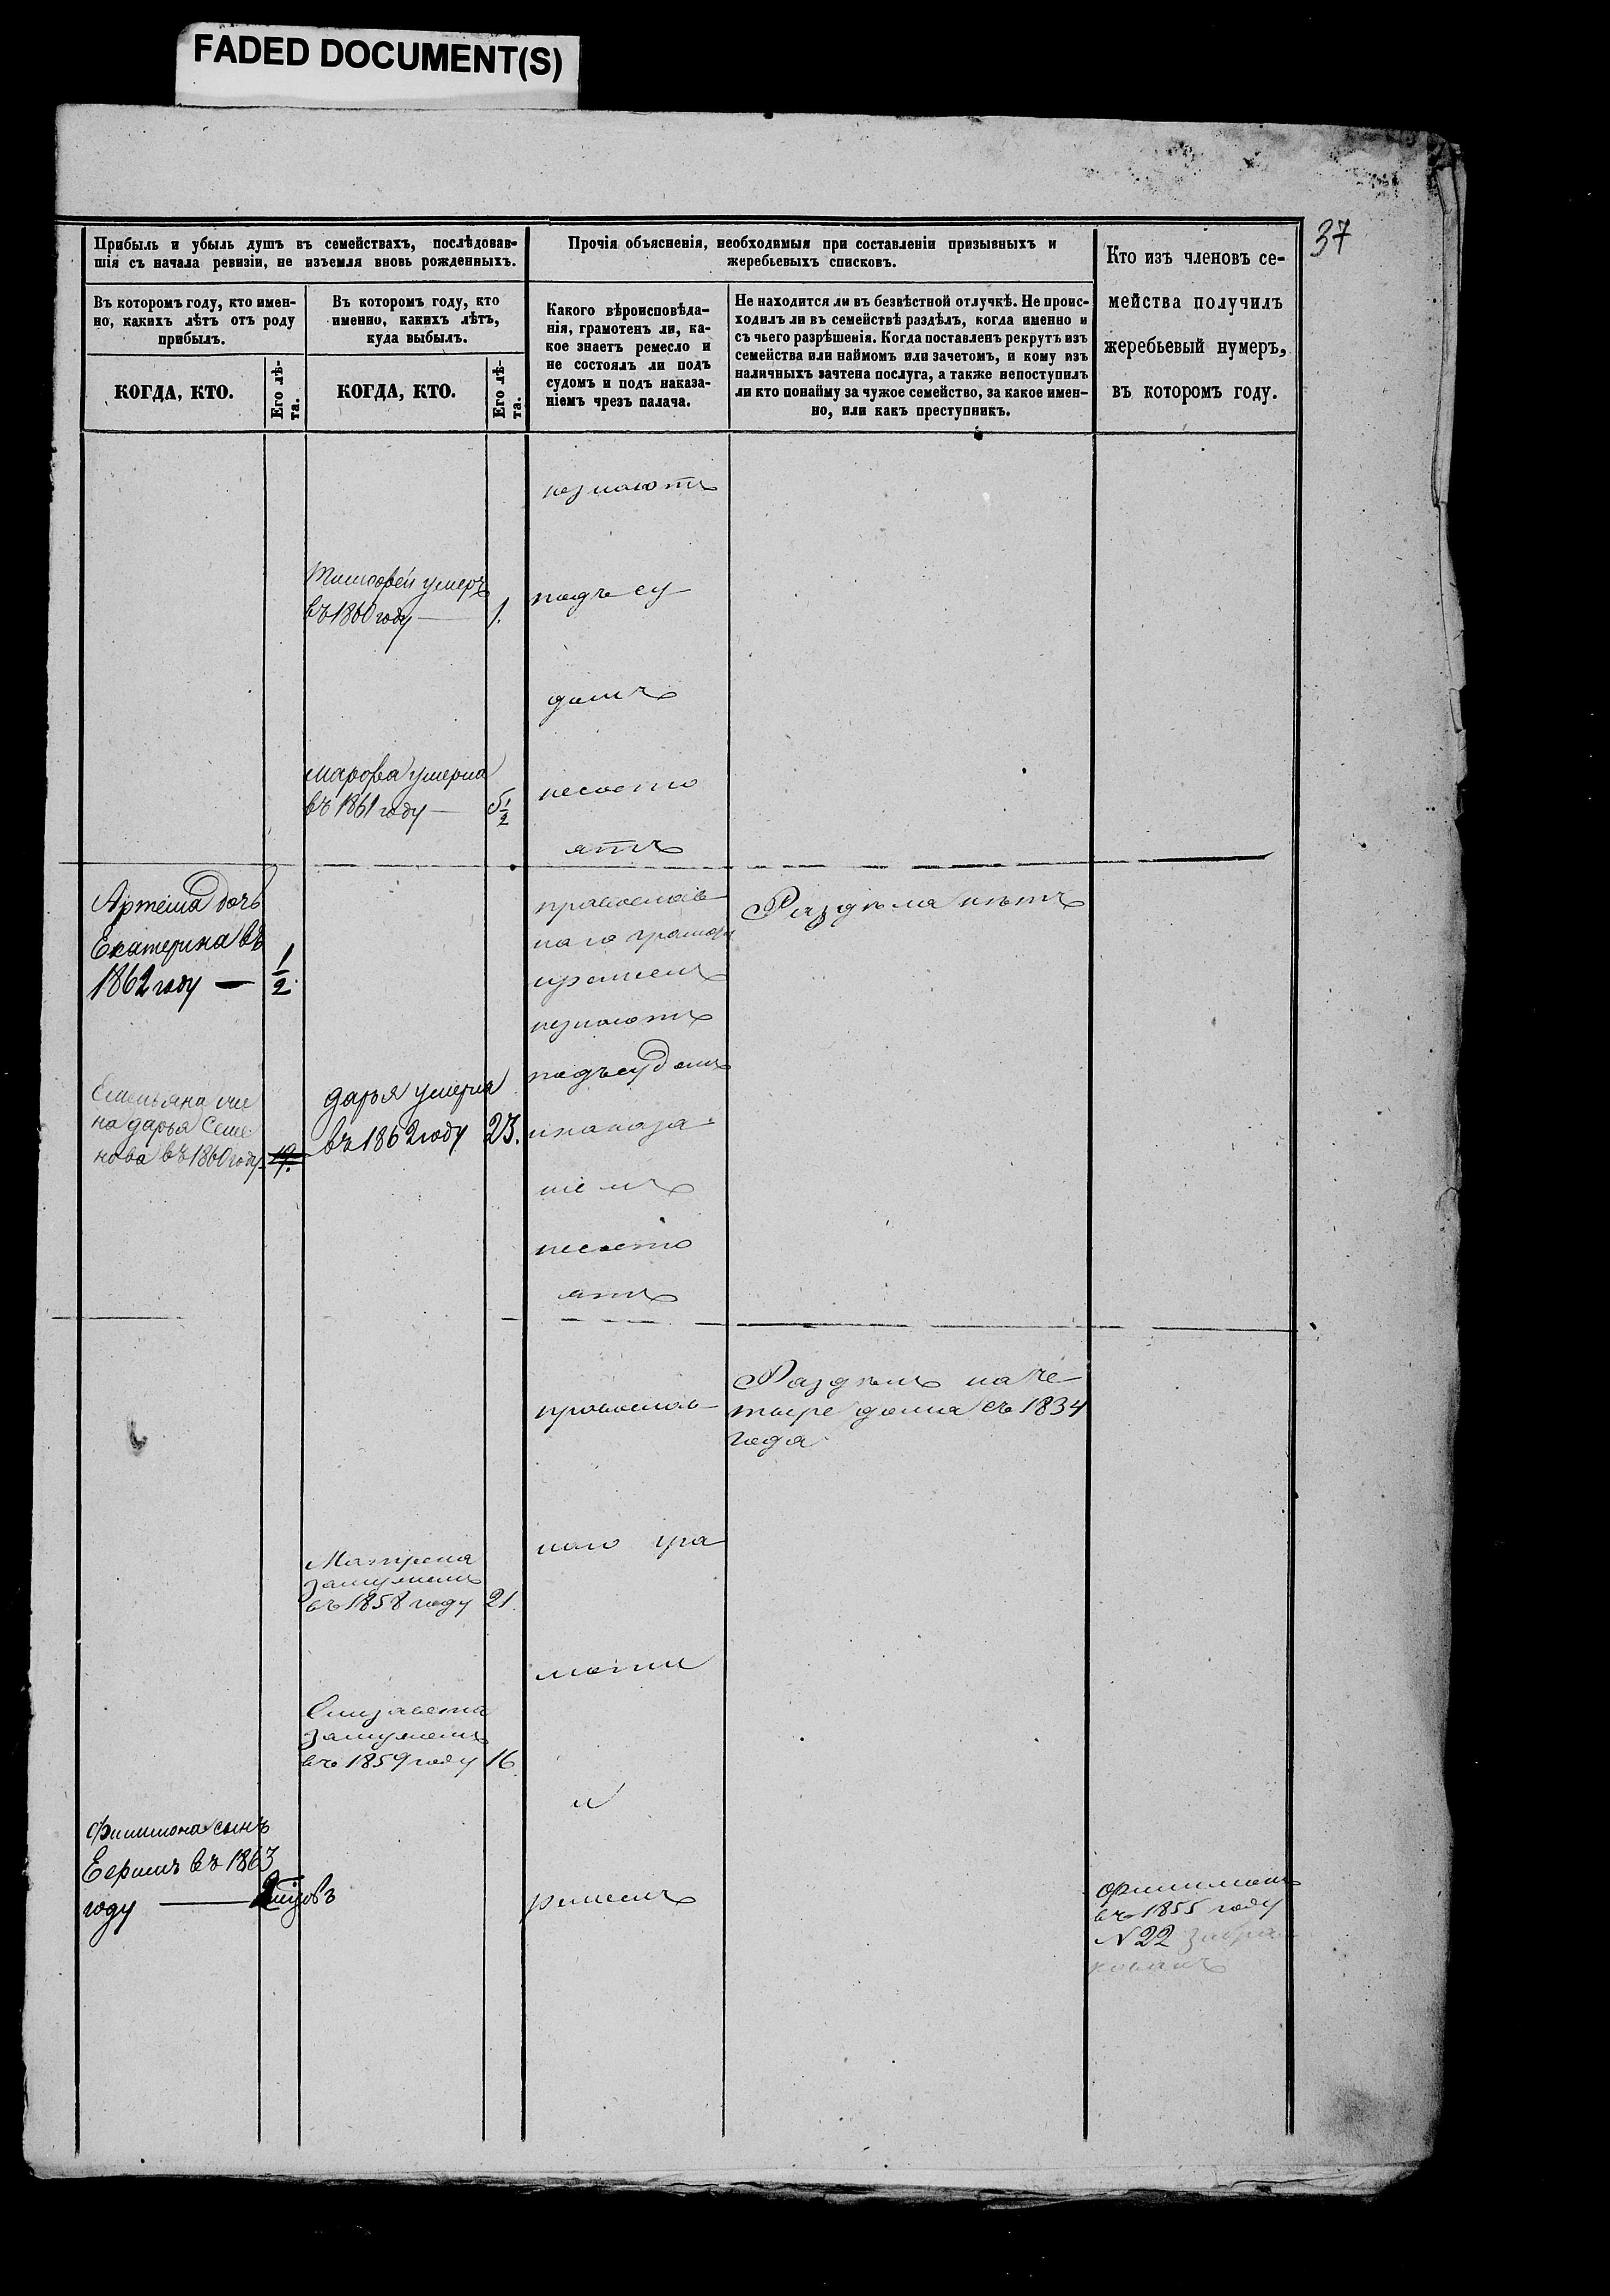 FADED DOCUMENT(S)
37
Прибыль и убыль душъ въ семействахъ, послѣдовав-
шія съ начала ревизіи, не изъемля вновь рожденныхъ.
Прочія объясненія, необходимыя при составленіи призывныхъ и
жеребьевыхъ списковъ.
Кто изъ членовъ се-
мейства получилъ
жеребьевый нумеръ,
въ которомъ году.
Въ которомъ году, кто имен-
но, какихъ лѣтъ отъ роду
прибылъ.
Въ которомъ году, кто
именно, какихъ лѣтъ,
куда выбылъ.
Какого вѣроисповѣда-
нія, грамотенъ ли, ка-
кое знаетъ ремесло и
не состоялъ ли подъ
судомъ и подъ наказа-
ніемъ чрезъ палача.
Не находится ли въ безвѣстной отлучкѣ. Не проис-
ходилъ ли въ семействѣ раздѣлъ, когда именно и
съ чьего разрѣшенія. Когда поставленъ рекрутъ изъ
семейства или наймомъ или зачетомъ, и кому изъ
наличныхъ зачтена послуга, а также непоступилъ
ли кто понайму за чужое семейство, за какое имен-
но, или какъ преступникъ.
КОГДА, КТО.
Его лѣ-
та.
КОГДА, КТО.
Его лѣ-
та.
незнаютъ
Тимофей умеръ
въ 1860 году — 1.
подъ су
домъ
марфа умерла
въ 1861 году — 5 1/2
несосто
ятъ
Артема дочь
Екатерина въ
1862 году — 1/2
православ
наго
ремеслъ
незнаютъ
подъ судомъ
инаказа
ніемъ
несосто
ятъ
Раздѣла нѣтъ
Емельяна же
на дарья Семе
нова въ 1860 году 19.
дарья умерла
въ 1862 году 23.
православ
наго гра
моти
и
ремеслъ
Раздѣлъ на че
тыре дома съ 1834
года
Матрена
замужемъ
въ 1858 году 21.
Елизавета
замужемъ
въ 1859 году 16.
Филимона сынъ
въ 1863
году —
Филимонъ
въ 1855 году
N 22 забра
кованъ